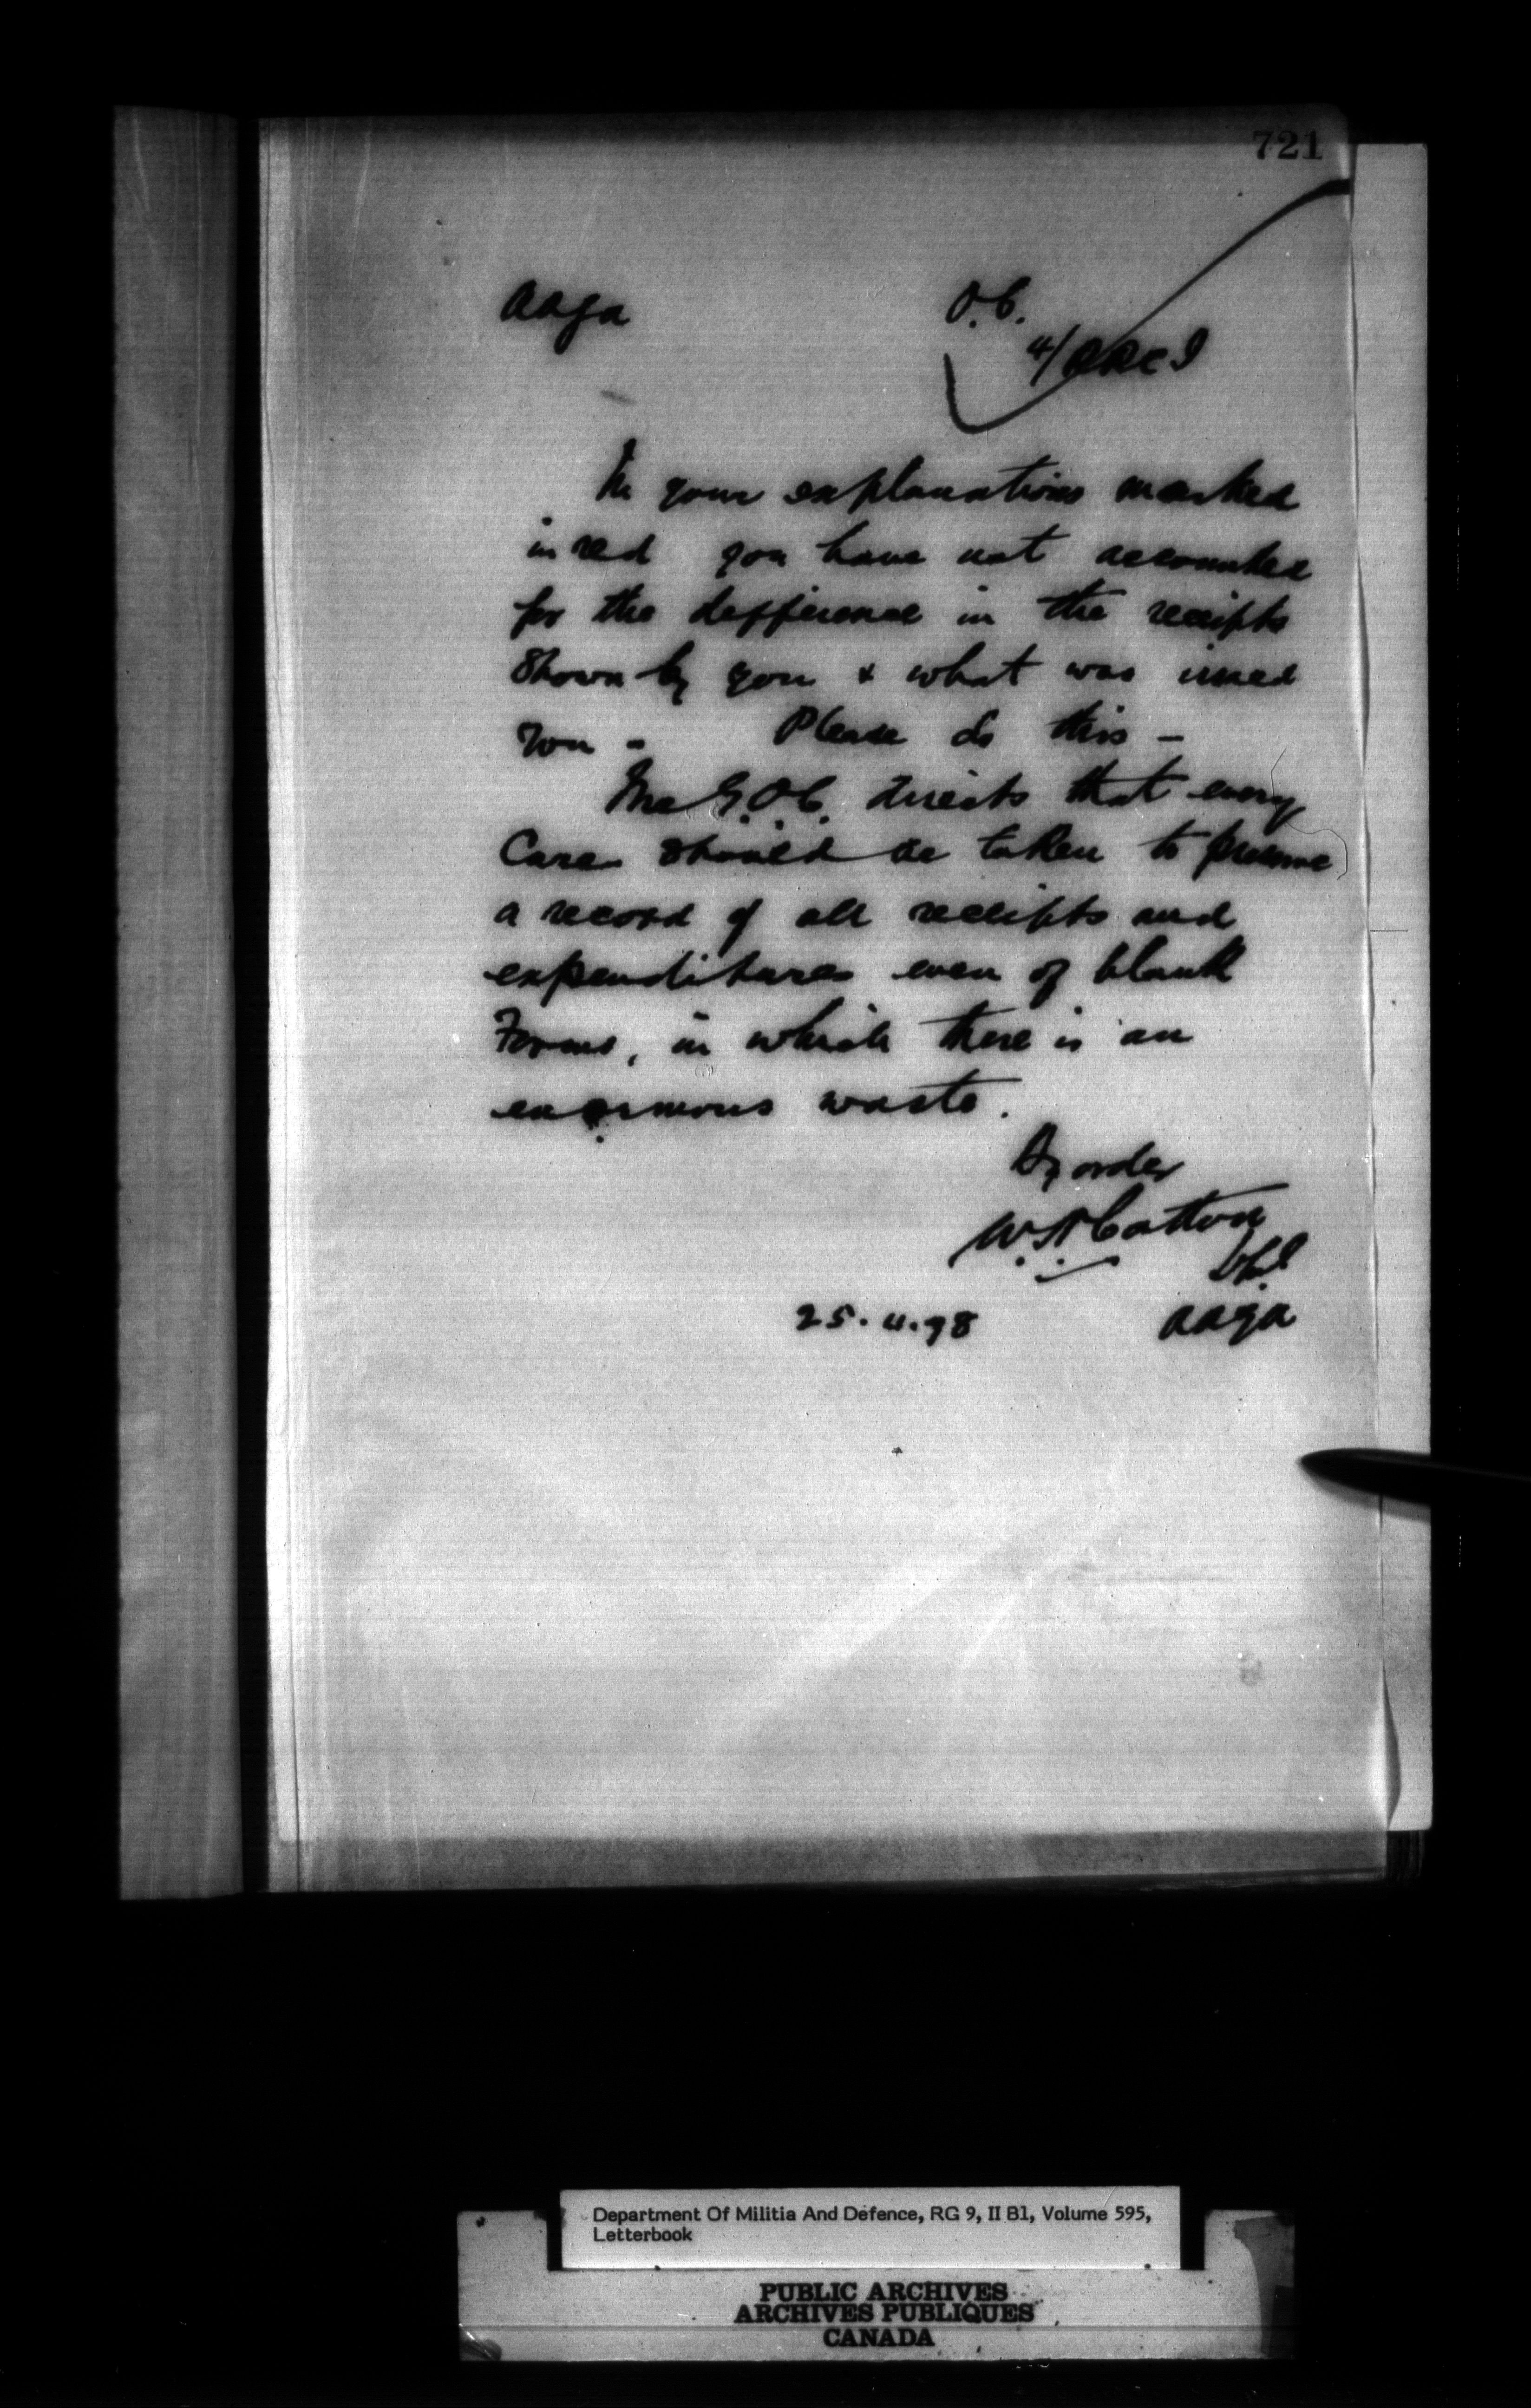 721
AAGA
O.C.
4/RRCI
In your explanations marked
in red you have not accounted
for the defference in the receipts
shown by you & what was issued
you - Please do this -
The G.O.C. directs that every
Care should be taken to preserve
a record of all receipts and
expenditures even of blank
Forms, in which there is an
enormous waste.
By order
W.H. Cotton
25.4.98 AAGA
Department Of Militia And Defence, RG 9, II B1, Volume 595,
Letterbook
PUBLIC ARCHIVES
ARCHIVES PUBLIQUES
CANADA